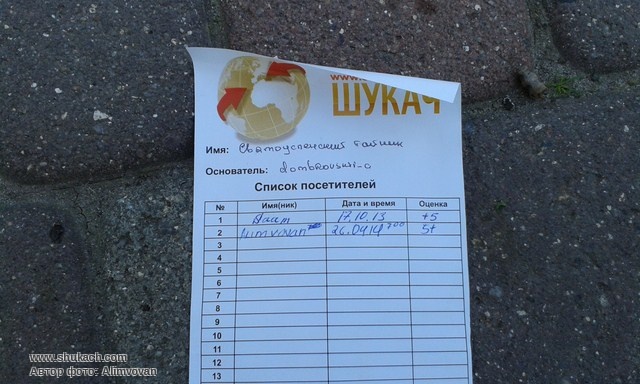 www.
ШУКАЧ
Имя: Святоуспенский тайник
Основатель: dombrovski_o
Список посетителей
№ Имя(ник) Дата и время Оценка
1 17.10.13 +5
2 Alimvovan 26.04.14 5+
3
4
5
6
7
8
9
10
11
12
13
www.shukach.com
Автор фото: Alimvovan